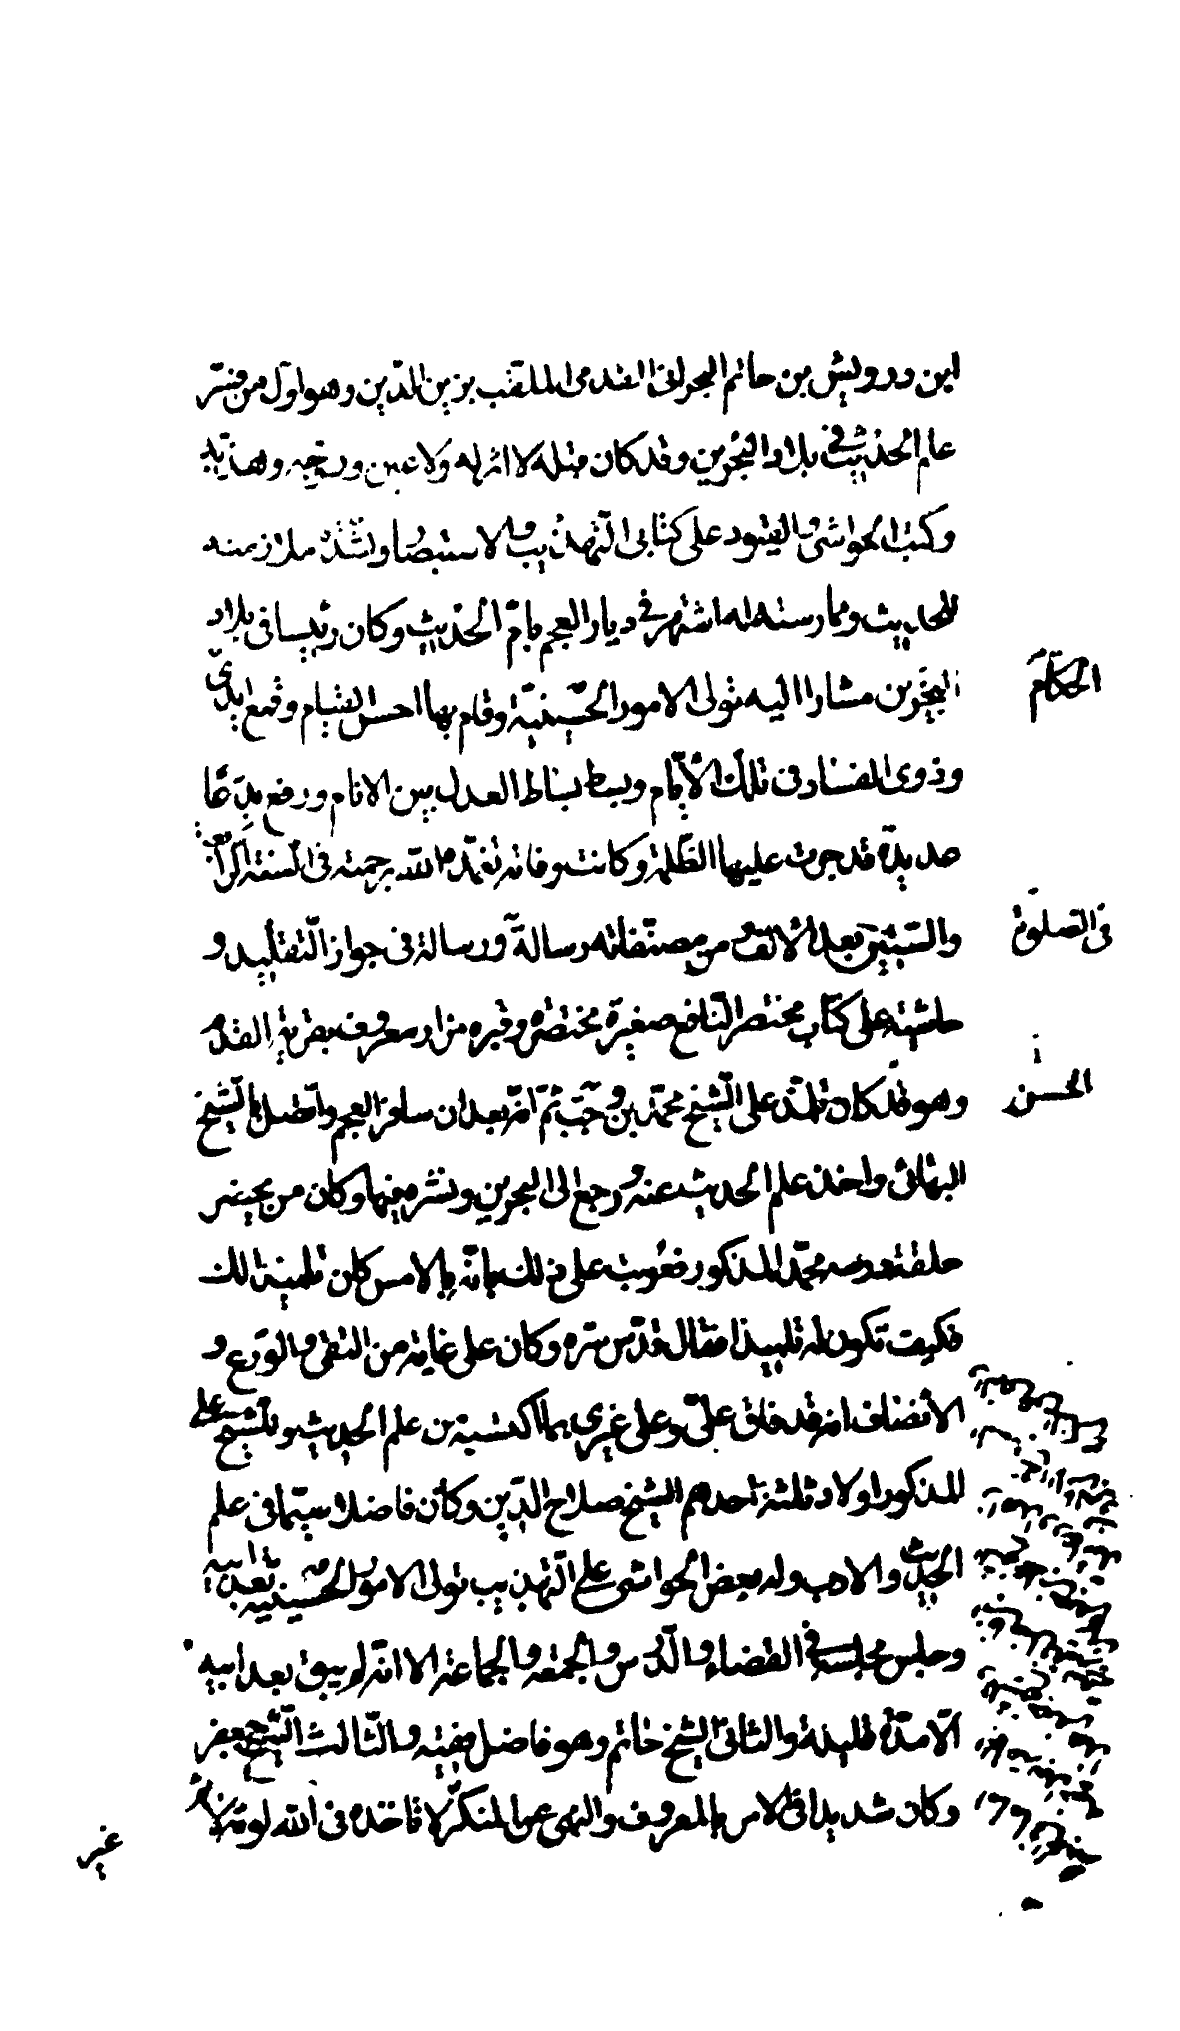 ابن درويش بن حاتم البحراني القدمي الملقب بزين الدّين وهو اوّل من نشر
علم الحديث في بلاد البحرين وقد كان قبله لا اثر له ولا عين وروّجه وهذّبه
وكتب الحواشي والقيود على كتابي التهذيب والاستبصار ولشدّة ملازمته
للحديث وممارسته له اشتهر في ديار العجم بامّ الحديث وكان رئيسا في بلاد
البحرين مشارا اليه تولى الامور الحسبيّة وقام بها احسن القيام وقمع ايدي
الحكام
وذوي الفساد في تلك الأيّام وبسط بساط العدل بين الانام ورفع بدعا
عديدة قد جرت عليها الظلمة وكانت وفاته تغمّده الله برحمته في السّنة الرابعة
والستّين بعد الالف من مصنّفاته رسالة ورسالة في جواز التقليد و
في الصلوة
حاشية على كتاب مختصر النّافع صغيرة مختصرة وقبره مزار معروف بقرية القدم
وهو قد كان تلمّذ على الشّيخ محمّد بن رجب ثمّ انّه بعد ان سافر العجم واتّصل بالشّيخ
الحسن
البهائي واخذ علم الحديث عنه ورجع الى البحرين ونشره فيها وكان من يحضر
حلقة درسه محمّد المذكور فعوتب على ذلك بانّه بالامس كان تلميذا لك
فكيف تكون له تلميذا فقال قدّس سرّه وكان على غاية من التقى والورع و
الأنصاف انه قد فاق عليّ وعلى غيري بما اكتسبه من علم الحديث وللشيخ علي
المذكور اولاد ثلثة احدهم الشيخ صلاح الدّين وكان فاضلا سيّما في علم
الحديث والادب وله بعض الحواشي على التهذيب تولى الامور الحسبيّة بعد ابيه
وجلس مجلسه في القضاء والدّرس والجمعة والجماعة الا انّه لم يبق بعد ابيه
الّا مدّة قليلة والثاني الشيخ حاتم وهو فاضل فقيه والثّالث الشّيخ جعفر
وكان شديدا في الامر بالمعروف والنهى عن المنكر لا تاخذه في الله لومة لائم
غير